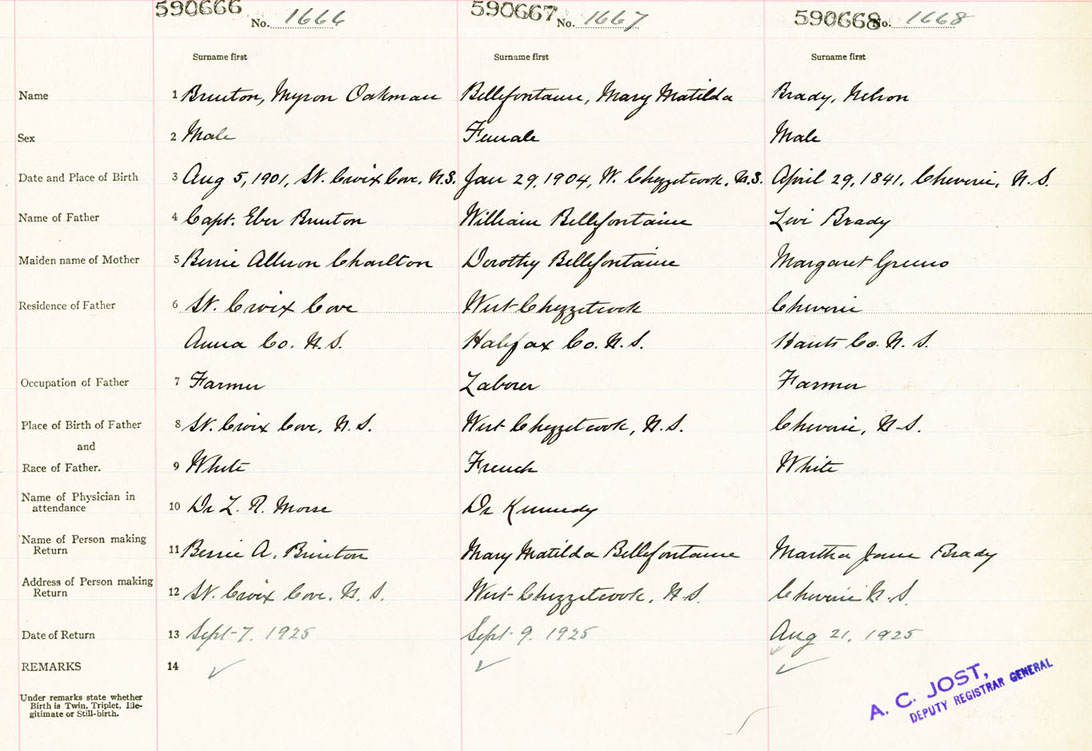 590666 No. 1666 590667 No. 1667 590668 No. 1668
Surname first Surname first Surname first
Name 1 Brinton, Myron Oakman Bellefontaine, Mary Matilda Brady, Nelson
Sex 2 Male Female Male
Date and Place of Birth 3 Aug 5, 1901, St. Croix Cove, N.S. Jan 29, 1904, W. Chezzetcook, N.S. April 29, 1841, Cheverie, N.S.
Name of Father 4 Capt. Eber Brinton William Bellefontaine Levi Brady
Maiden name of Mother 5 Allison Charlton Dorothy Bellefontaine Margaret Greeno
Residence of Father 6 St. Croix Cove West Chezzetcook Cheverie
Anna Co. N.S. Halifax Co. N.S. Hants Co. N.S.
Occupation of Father 7 Farmer Laborer Farmer
Place of Birth of Father 8 St. Croix Cove, N.S. West Chezzetcook, N.S. Cheverie, N.S.
and
Race of Father. 9 White French White
Name of Physician in
attendance 10 Dr L. R. Morse Dr Kennedy
Name of Person making
Return 11 A. Brinton Mary Matilda Bellefontaine Martha Jane Brady
Address of Person making
Return 12 St. Croix Cove, N.S. West Chezzetcook, N.S. Cheverie N.S.
Date of Return 13 Sept 7, 1925 Sept 9, 1925 Aug 21, 1925
REMARKS 14 ✓ ✓ ✓
Under remarks state whether
Birth is Twin, Triplet, Ille-
gitimate or Still-birth.
A. C. JOST,
DEPUTY REGISTRAR GENERAL